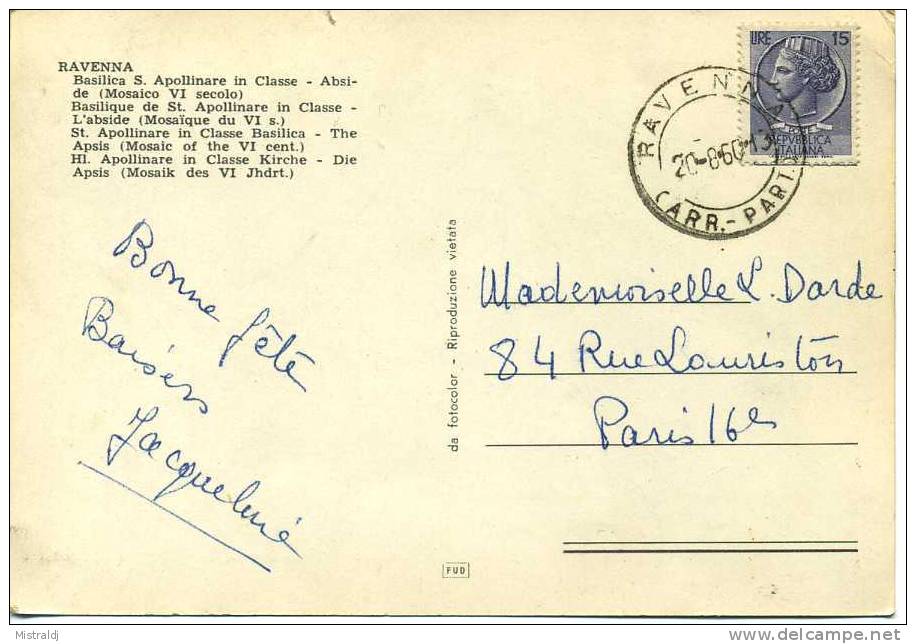 RAVENNA
Basilica S. Apollinare in Classe - Absi-
de (Mosaico VI secolo)
Basilique de St. Apollinare in Classe -
L'abside (Mosaïque du VI s.)
St. Apollinare in Classe Basilica - The
Apsis (Mosaic of the VI cent.)
Hl. Apollinare in Classe Kirche - Die
Apsis (Mosaik des VI Jhdrt.)
LIRE 15
REPVBBLICA
ITALIANA
RAVENNA
20-8-60-13
(ARR.-PART.)
Bonne fête
Baisers
Jacqueline
da fotocolor - Riproduzione vietata
Mademoiselle L. Darde
84 Rue Lauriston
Paris 16e
FUD
Mistraldj
http://www.delcampe.net